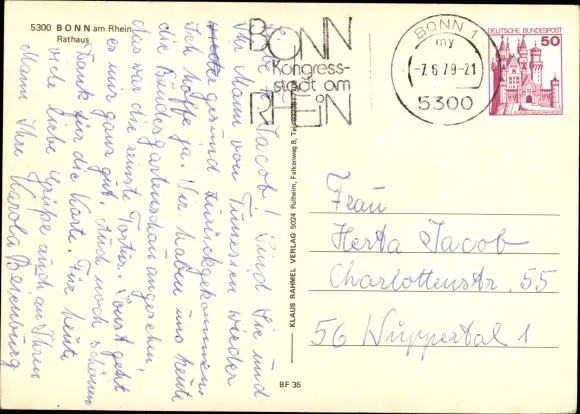 5300 BONN am Rhein
Rathaus
Jacob! Sind Sie und
Ihr Mann von Tunesien wieder
gesund zurückgekommen.
Ich hoffe ja. Wir haben uns heute
die Bundesgartenschau angesehen,
das war die Tortur. Sonst geht
es uns ganz gut. Auch noch schönen
Dank für die Karte. Für heute
viele liebe Grüße auch an Ihren
Mann Ihre Karola
BONN
Kongress-
stadt am
RHEIN
BONN 1
my
-7.6.79-21
5300
DEUTSCHE BUNDESPOST
50
KLAUS RAHMEL VERLAG 5024 Pulheim, Falkenweg 8,
BF 35
Frau
Herta Jacob
Charlottenstr. 55
56 Wuppertal 1